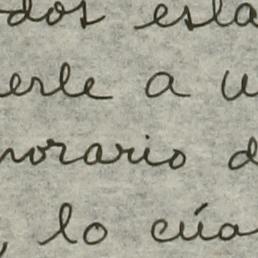 dos esta
erle a u
norario d
, lo cúa